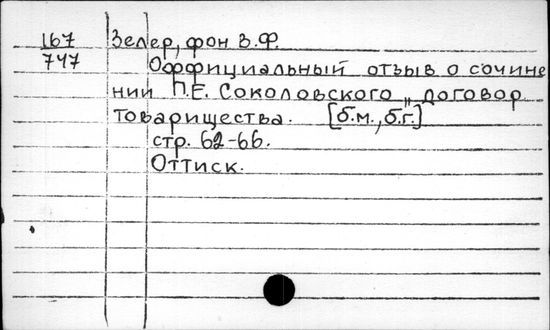 167 Зелер, фон В.Ф.
747 Оффициальный отзыв о сочине
нии П.Е. Соколовского „договор
товарищества. [б.м., б.г.]
стр. 62-66.
Оттиск.